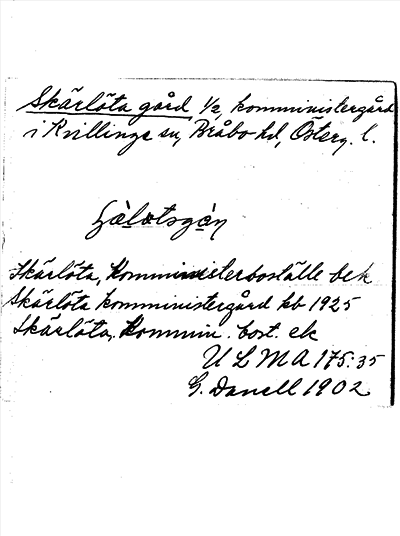 Skärlöta gård, 1/2, komministergård
i Kvillinge sn, Bråbo hd, Österg. l.
Skärlöta, Komministerboställe bek
Skärlöta komministergård kb 1925
Skärlöta, Kommin. bost. ek
ULMA 175:35
G. Danell 1902